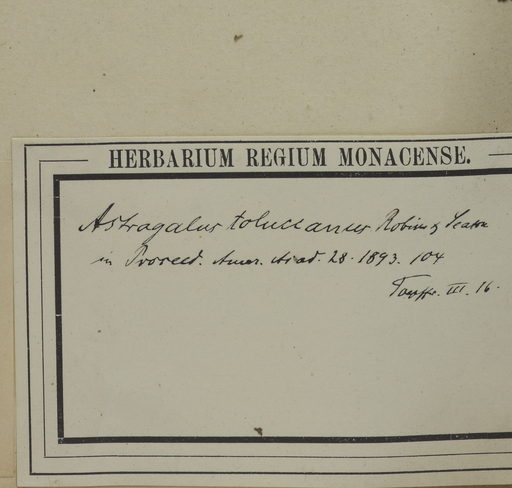 HERBARIUM REGIUM MONACENSE.
Astragalus tolucanus Robins & Seaton
in Proceed. Amer. Acad. 28. 1893. 104
III. 16.